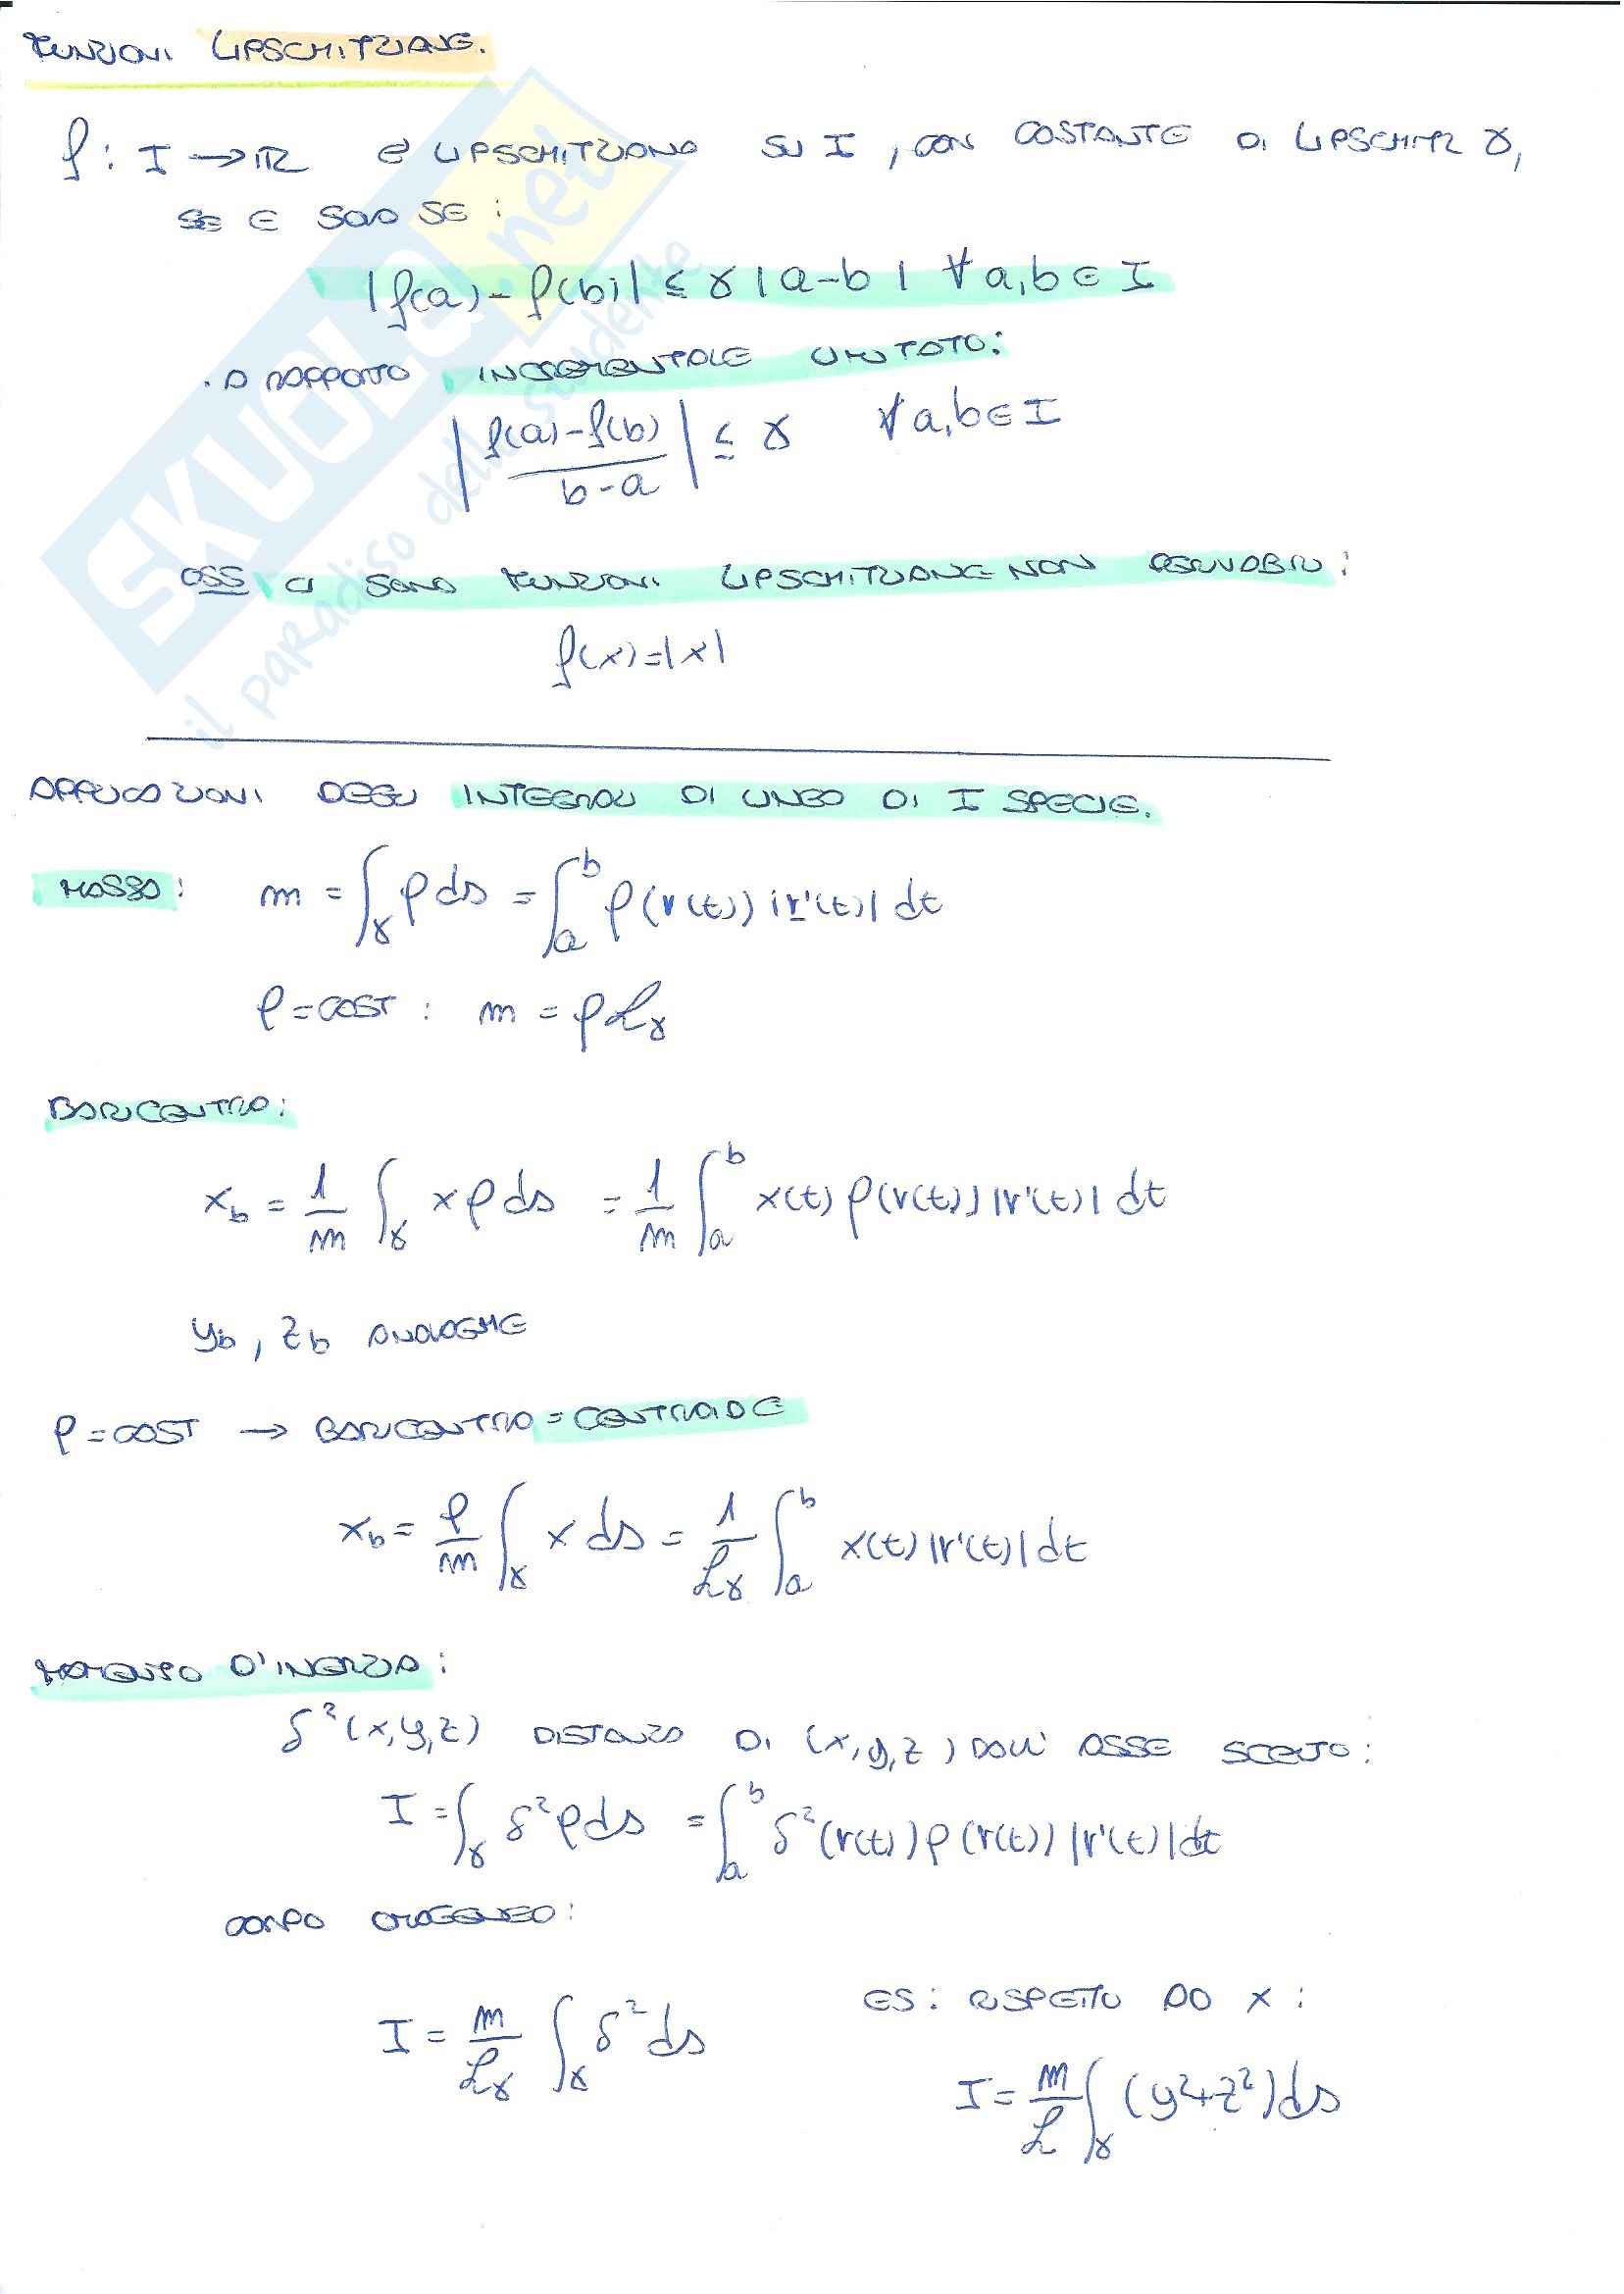 FUNZIONI LIPSCHITZIANE.
f: I → ℝ è LIPSCHITZIANA SU I, CON COSTANTE DI LIPSCHITZ γ,
SE E SOLO SE:
|f(a) - f(b)| ≤ γ |a-b| ∀ a,b ∈ I
. A RAPPORTO INCREMENTALE LIMITATO:
|(f(a)-f(b))/(b-a)| ≤ γ ∀ a,b ∈ I
OSS CI SONO FUNZIONI LIPSCHITZIANE NON DERIVABILI:
f(x)=|x|
APPLICAZIONI DEGLI INTEGRALI DI LINEA DI I SPECIE.
MASSA: m = ∫_γ ρ ds = ∫_a^b ρ(r(t)) |r'(t)| dt
ρ = COST : m = ρ L_γ
BARICENTRO:
x_b = 1/m ∫_γ xρ ds = 1/m ∫_a^b x(t) ρ(r(t)) |r'(t)| dt
y_b, z_b ANALOGHE
ρ = COST → BARICENTRO = CENTROIDE
x_b = ρ/m ∫_γ x ds = 1/L_γ ∫_a^b x(t) |r'(t)| dt
MOMENTO D'INERZIA:
δ²(x,y,z) DISTANZA DI (x,y,z) DALL' ASSE SCELTO:
I = ∫_γ δ²ρ ds = ∫_a^b δ²(r(t)) ρ(r(t)) |r'(t)| dt
CORPO OMOGENEO:
I = m/L_γ ∫_γ δ² ds
ES: RISPETTO AD X:
I = m/L ∫_γ (y²+z²) ds
SKUOLA.net
il paradiso dello studente